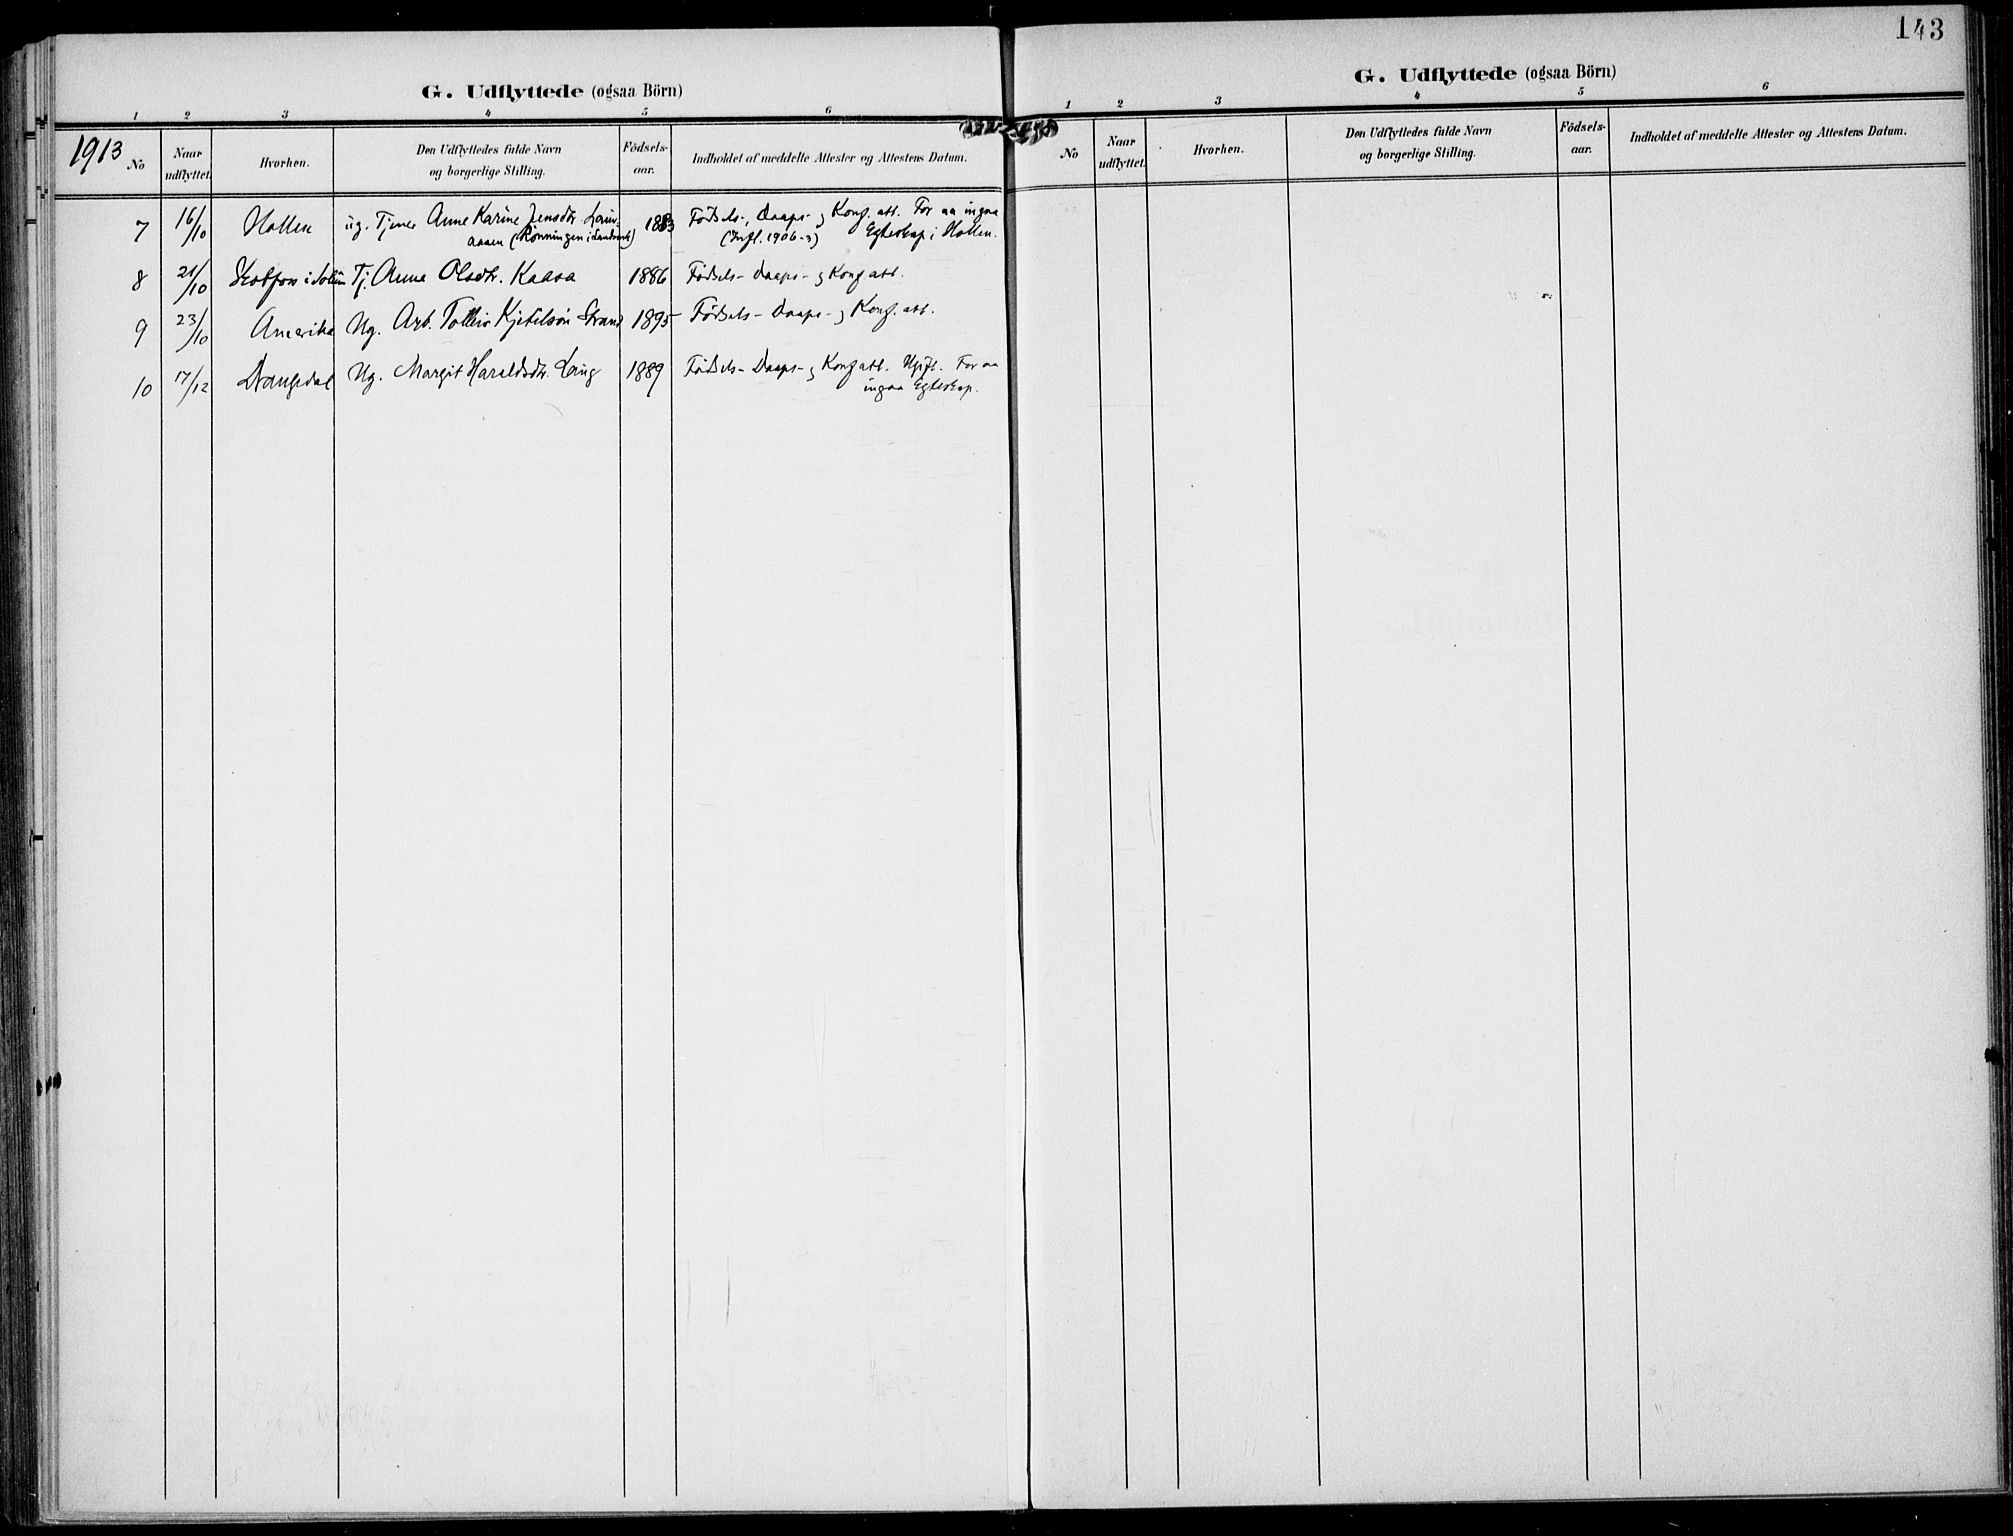 G. Udflyttede (ogsaa Börn)
1 2 3 4 5 6
1913 No Naar udflyttet. Hvorhen. Den Udflyttedes fulde Navn og borgerlige Stilling. Födsels-aar. Indholdet af meddelte Attester og Attestens Datum.
7 16/10 Hollen ug. Tjener Anne Karine Jensdtr. 1883 Fødsels-, Daaps- og Konf. att. For aa ingaa
aasen (Rönningen i Landsmk) (Infl. 1906-3) Egteskap i Hollen.
8 21/10 Skotfoss i Solum Tj. Anne Olsdtr. Kaasa 1886 Fødsels- Daaps- og Konf att.
9 23/10 Amerika Ug. Arb. Tolleiv Kjetilsön Strand 1895 Fødsels- Daaps- og Konf. att.
10 17/12 Drangedal Ug. Margit Haraldsdtr. 1889 Fødsels- Daaps- og Konf att. Ugift. For aa
ingaa Egteskap.
143
G. Udflyttede (ogsaa Börn)
1 2 3 4 5 6
No Naar udflyttet. Hvorhen. Den Udflyttedes fulde Navn og borgerlige Stilling. Födsels-aar. Indholdet af meddelte Attester og Attestens Datum.